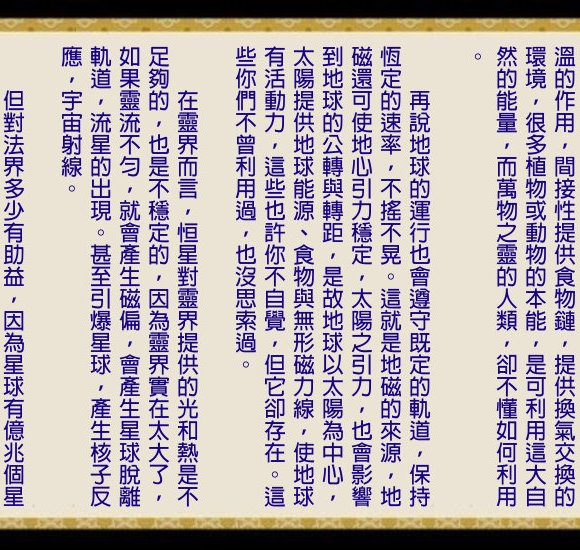 溫的作用，間接性提供食物鏈，提供換氣交換的
環境，很多植物或動物的本能，是可利用這大自
然的能量，而萬物之靈的人類，卻不懂如何利用
。
再說地球的運行也會遵守既定的軌道，保持
恆定的速率，不搖不晃。這就是地磁的來源，地
磁還可使地心引力穩定，太陽之引力，也會影響
到地球的公轉與轉距，是故地球以太陽為中心，
太陽提供地球能源、食物與無形磁力線，使地球
有活動力，這些也許你不自覺，但它卻存在。這
些你們不曾利用過，也沒思索過。
在靈界而言，恒星對靈界提供的光和熱是不
足夠的，也是不穩定的，因為靈界實在太大了，
如果靈流不勻，就會產生磁偏，會產生星球脫離
軌道，流星的出現。甚至引爆星球，產生核子反
應，宇宙射線。
但對法界多少有助益，因為星球有億兆個星